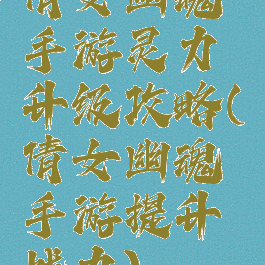 倩女幽魂
手游灵力
升级攻略(
倩女幽魂
手游提升
战力)